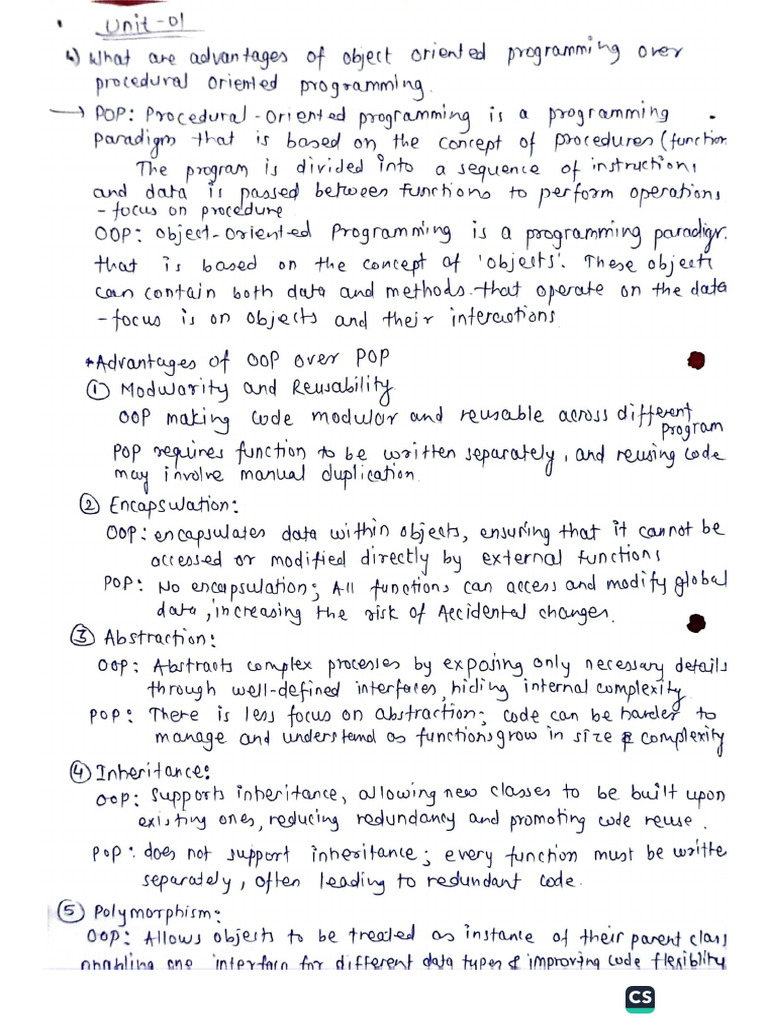 Unit-01
4) What are advantages of object oriented programming over
procedural oriented programming.
→ POP: Procedural-oriented programming is a programming
paradigm that is based on the concept of procedures (function
The program is divided into a sequence of instructions
and data is passed between functions to perform operations
- focus on procedure
OOP: Object-oriented Programming is a programming paradigr.
that is based on the concept of 'objects'. These objects
can contain both data and methods that operate on the data
- focus is on objects and their interactions
*Advantages of OOP over POP
① Modularity and Reusability
OOP making code modular and reusable across different
program
POP requires function to be written separately, and reusing code
may involve manual duplication.
② Encapsulation:
OOP: encapsulates data within objects, ensuring that it cannot be
accessed or modified directly by external functions
POP: No encapsulation; All functions can access and modify global
data, increasing the risk of Accidental changes.
③ Abstraction:
OOP: Abstracts complex processes by exposing only necessary details
through well-defined interfaces, hiding internal complexity.
POP: There is less focus on abstraction; code can be harder to
manage and understand as functions grow in size & complexity
④ Inheritance:
OOP: Supports inheritance, allowing new classes to be built upon
existing ones, reducing redundancy and promoting code reuse.
POP: does not support inheritance; every function must be writte
separately, often leading to redundant code.
⑤ Polymorphism:
OOP: Allows objects to be treated as instance of their parent class
enabling one interface for different data types & improving code flexibility
CS